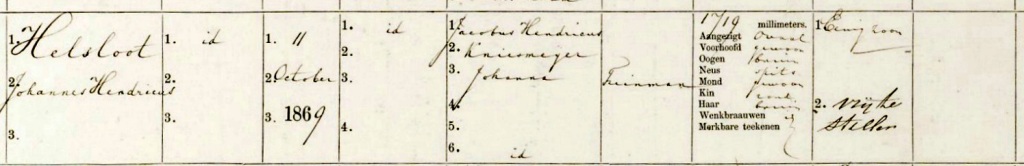 1. Helsloot
2. Johannes Hendricus
3.
1. id
2.
3.
1. 11
2. October
3. 1869
1. id
2.
3.
4.
1. Jacobus Hendricus
2. Kniesmeyer
3. Johanna
4.
5.
6. id
Tuinman
1719 millimeters.
Aangezigt Ovaal
Voorhoofd gewoon
Oogen bruin
Neus spits
Mond gewoon
Kin rond
Haar bruin
Wenkbraauwen id
Merkbare teekenen
1. Eenig zoon
2. vrij te
stellen